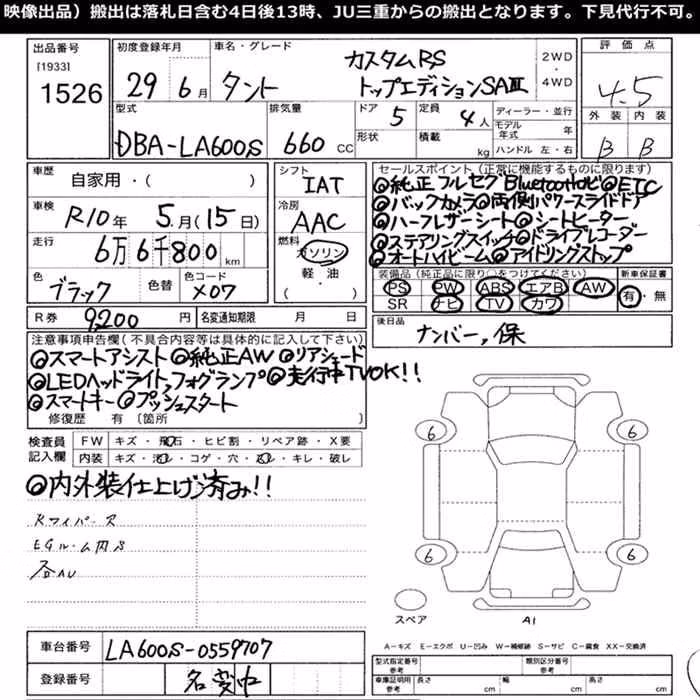 映像出品）搬出は落札日含む4日後13時、JU三重からの搬出となります。下見代行不可。
出品番号
[1933]
1526
初度登録年月
29年6月
車名・グレード
タント
カスタムRS
トップエディションSAⅢ
2WD
・
4WD
評価点
4.5
外装 内装
B B
型式
DBA-LA600S
排気量
660 CC
ドア
5
形状
定員
4人
積載
kg
ディーラー・並行
モデル年式 年
ハンドル 左・右
車歴
自家用・( )
車検
R10年 5月(15日)
走行
6万6千800km
色
ブラック
色替
色コード
X07
シフト
IAT
冷房
AAC
燃料
ガソリン
軽・油
( )
セールスポイント（正常に機能するものに限ります）
◎純正フルセグBluetoothナビ◎ETC
◎バックカメラ◎両側パワースライドドア
◎ハーフレザーシート◎シートヒーター
◎ステアリングスイッチ◎ドライブレコーダー
◎オートハイビーム◎アイドリングストップ
装備品（純正品に限り○をつけてください）
PS PW ABS エアB AW
SR ナビ TV カワ
新車保証書
有・無
R券 9200円
名変通知期限 月 日
後日品
ナンバー,保
注意事項申告欄（不具合内容等は具体的に記入して下さい）
◎スマートアシスト◎純正AW◎リアシェード
◎LEDヘッドライト,フォグランプ◎走行中TVOK!!
◎スマートキー◎プッシュスタート
修復歴 有 〔箇所 〕
検査員
記入欄
FW キズ・飛石・ヒビ割・リペア跡・X要
内装 キズ・汚レ・コゲ・穴・スレ・キレ・破レ
◎内外装仕上げ済み!!
Rワイパース
EGルーム内S
各AU
6
6
6
6
スペア
A1
A－キズ E－エクボ U－凹み W－補修跡 S－サビ C－腐食 XX－交換済
車台番号
LA600S-0559707
登録番号
名変中
型式指定番号
参考
類別区分番号
参考
車庫証明用
参考
長さ cm 幅 cm 高さ cm